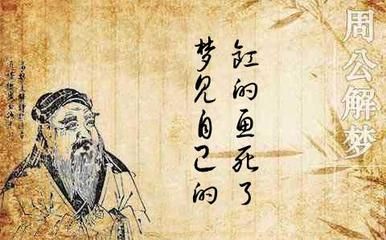 周公解梦
梦见自己的
缸的鱼死了